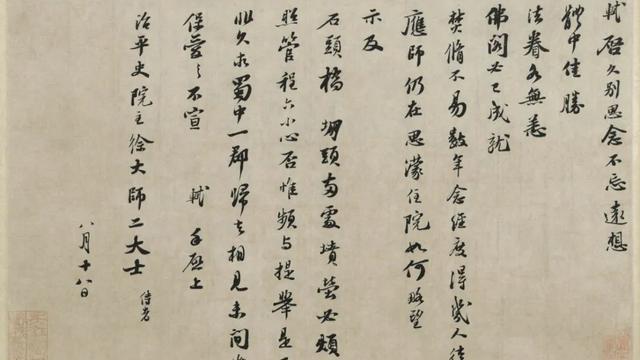 軾啓久別思念不忘遠想
體中佳勝
法眷各無恙
佛閣必已成就
焚脩不易數年念經度得幾人徒
應師仍在思濛住院如何略望
示及
石頭橋 堋頭兩處墳塋必煩
照管程六小心否惟頻与提舉是
非久求蜀中一郡歸去相見未間
保愛之不宣 軾 手啓上
治平史院主徐大師二大士 侍者
八月十八日